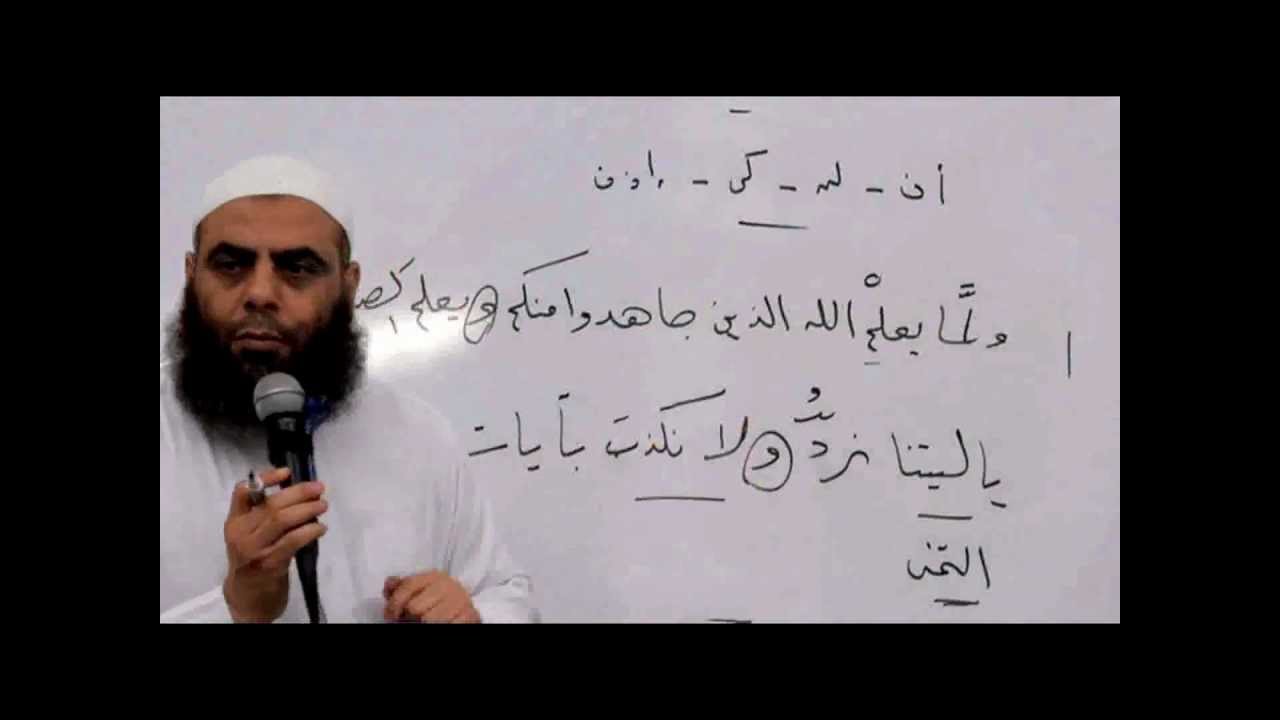 أن - لن - كي - إذن
ولمَّا يعلمِْ الله الذين جاهدوا منكم ويعلم الص
ياليتنا نردُّ ولا نكذب بآيات
التمني